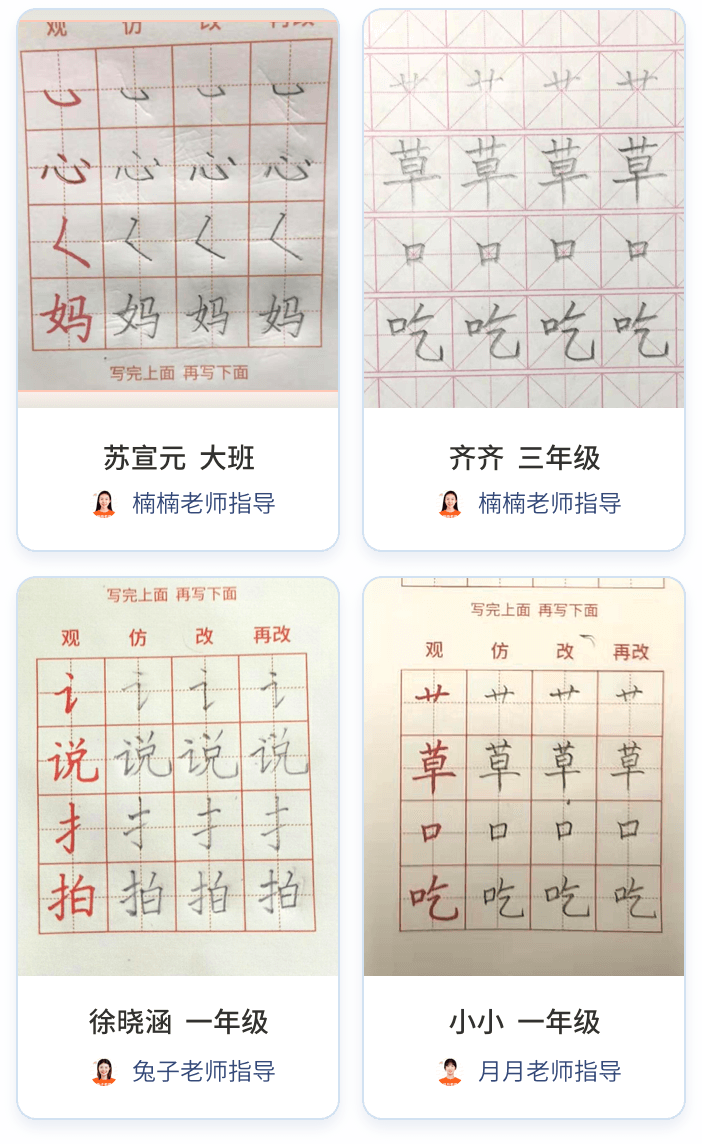 观 仿 改 再改
乚 乚 乚 乚
心 心 心 心
く く く く
妈 妈 妈 妈
写完上面 再写下面
苏宣元 大班
楠楠老师指导
艹 艹 艹 艹
草 草 草 草
口 口 口 口
吃 吃 吃 吃
齐齐 三年级
楠楠老师指导
写完上面 再写下面
观 仿 改 再改
讠 讠 讠 讠
说 说 说 说
扌 扌 扌 扌
拍 拍 拍 拍
徐晓涵 一年级
兔子老师指导
写完上面 再写下面
观 仿 改 再改
艹 艹 艹 艹
草 草 草 草
口 口 口 口
吃 吃 吃 吃
小小 一年级
月月老师指导